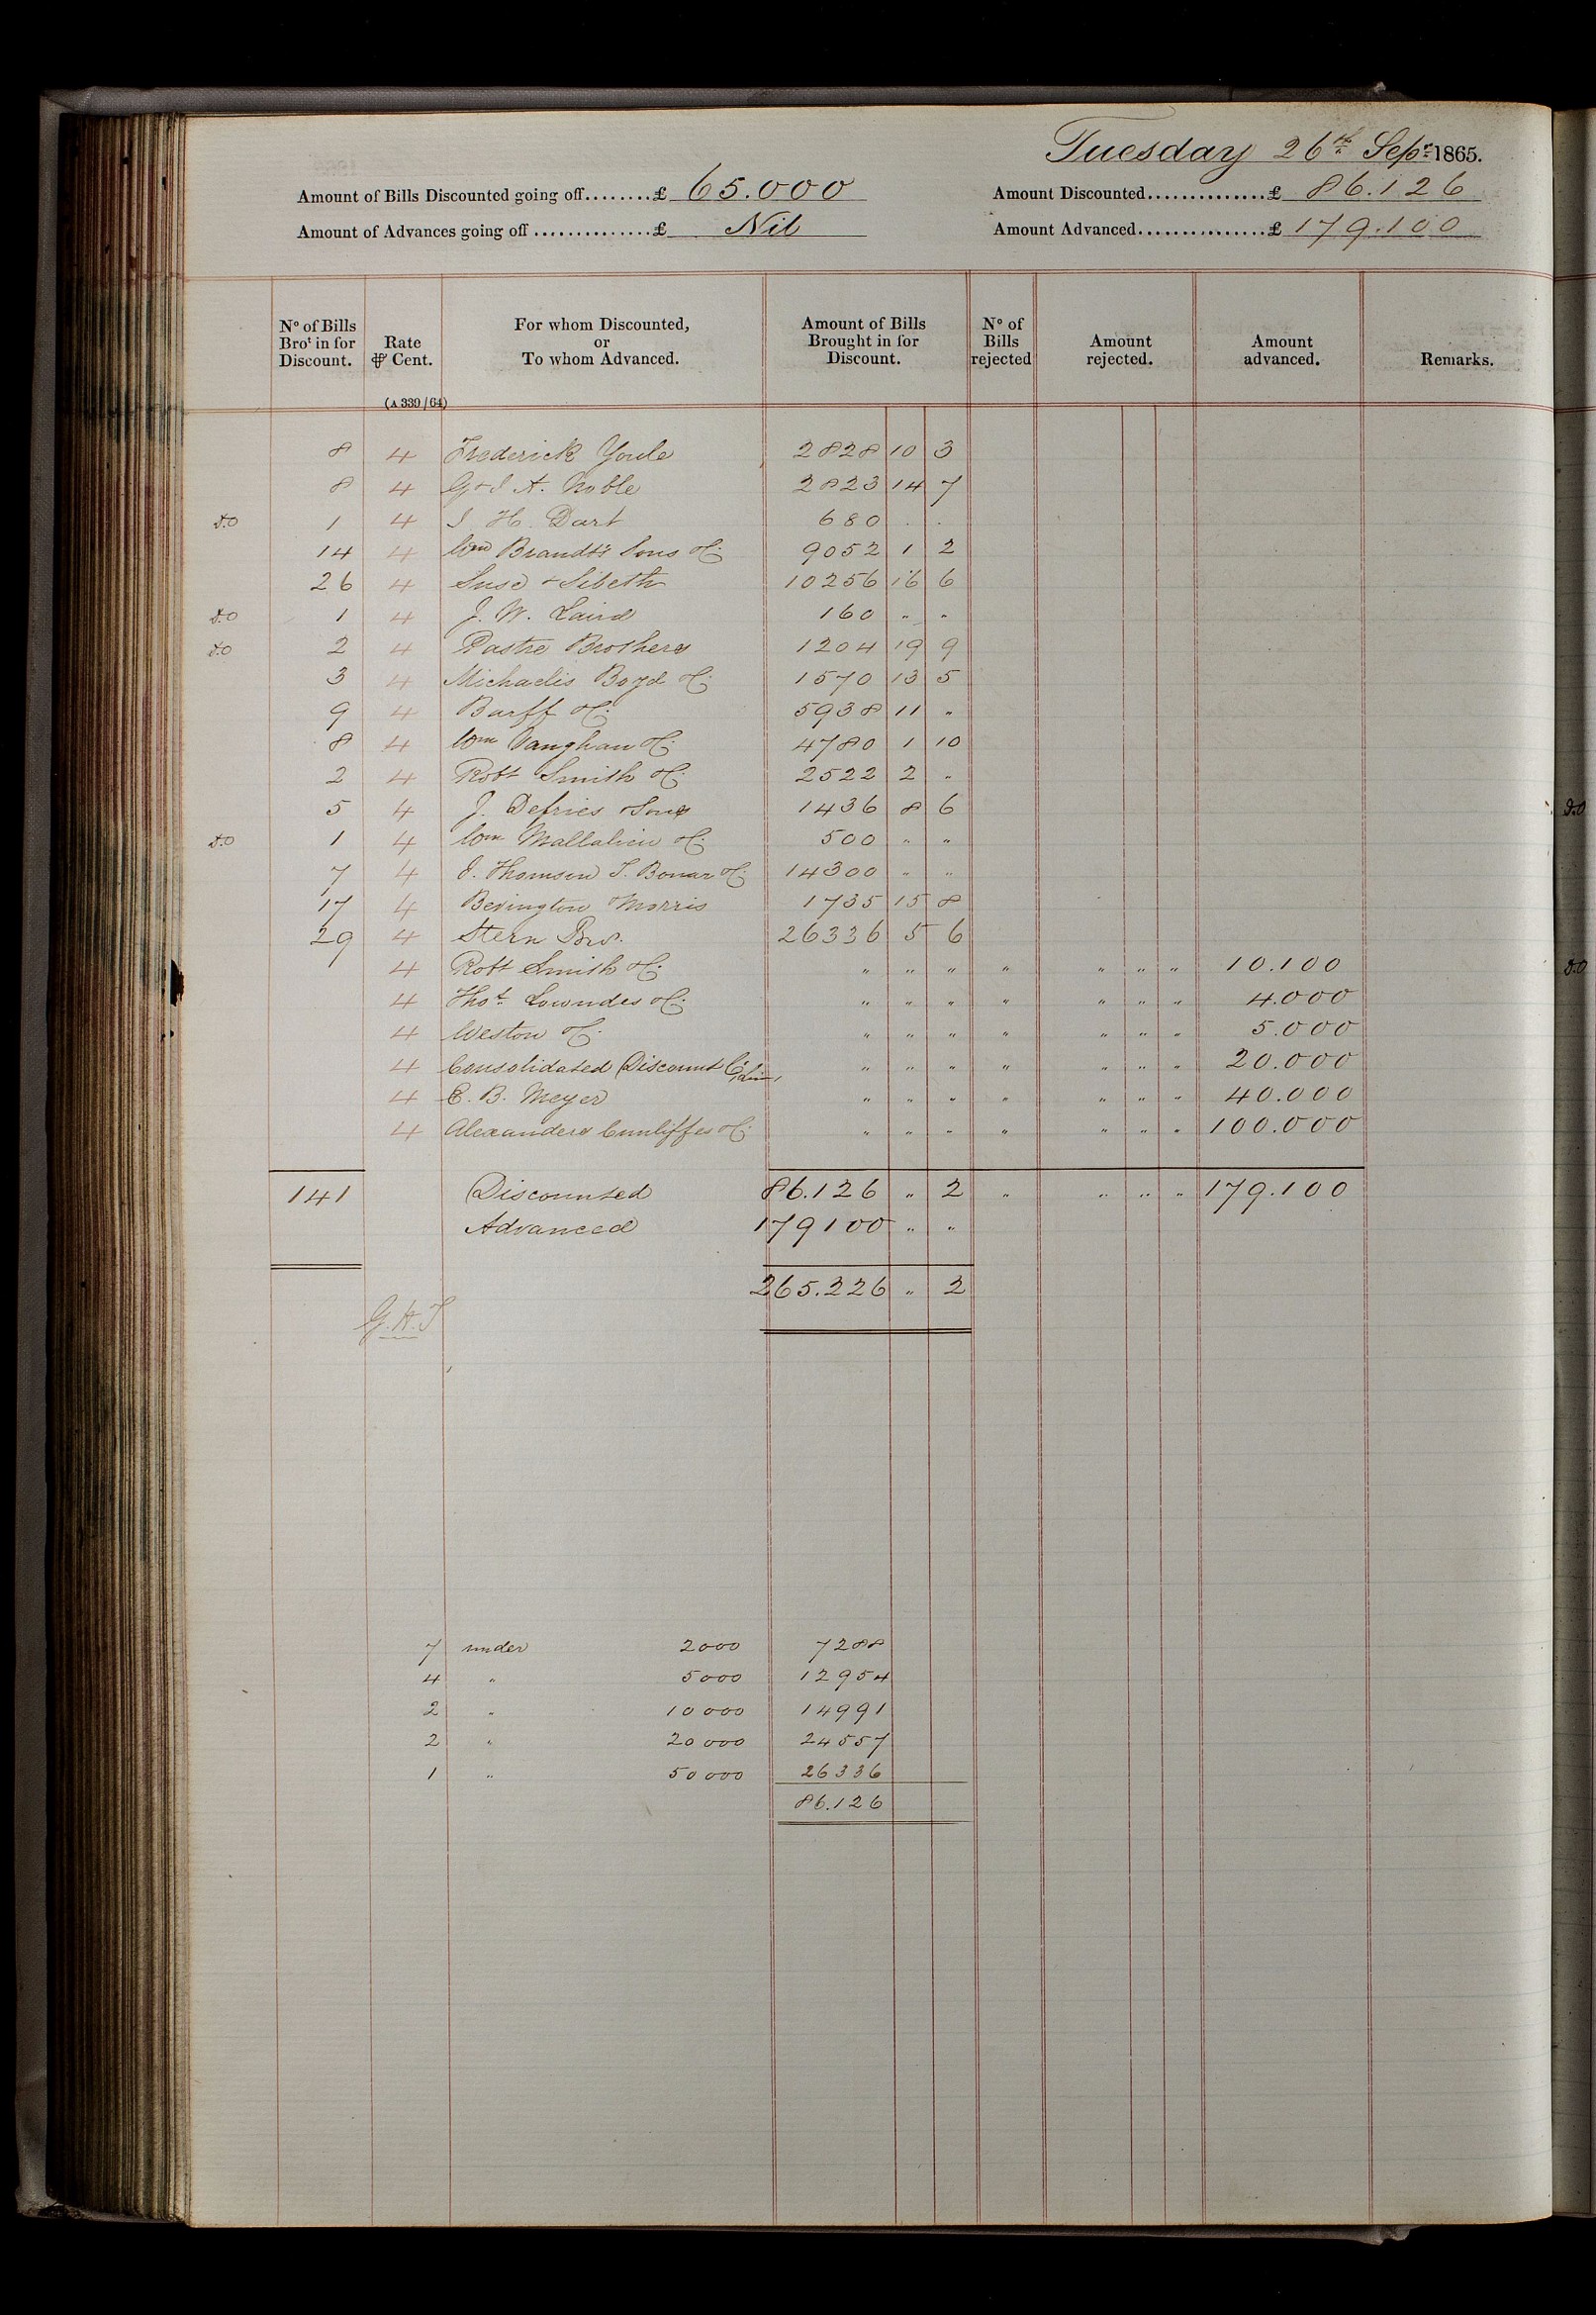 Tuesday 26th Sepr 1865.
Amount of Bills Discounted going off........£ 65.000 Amount Discounted..............£ 86.126
Amount of Advances going off..............£ Nil Amount Advanced...............£ 179.100
No of Bills Brot in for Discount. Rate ⅌ Cent. For whom Discounted, or To whom Advanced. Amount of Bills Brought in for Discount. No of Bills rejected Amount rejected. Amount advanced. Remarks.
(A 339/64)
8 4 Frederick Youle 2828 10 3
8 4 G & J A. Noble 2823 14 7
D.O 1 4 J H. Dart 680 . .
14 4 Wm Brandt's Sons & C. 9052 1 2
26 4 Suse & Sibeth 10256 16 6
D.O 1 4 J. W. Laird 160 " "
D.O 2 4 Pastre Brothers 1204 19 9
3 4 Michaelis Boyd & C. 1570 13 5
9 4 Barff & C. 5938 11 "
8 4 Wm Vaughan & C. 4780 1 10
2 4 Robt Smith & C. 2522 2 "
5 4 J. Defries & Sons 1436 8 6
D.O 1 4 Wm Mallalieu & C. 500 " "
7 4 J. Thomson T. Bonar & C. 14300 " "
17 4 Bevington & Morris 1735 15 8
29 4 Stern Bros. 26336 5 6
4 Robt Smith & C. " " " " " " " 10.100
4 Thos. Lowndes & C. " " " " " " " 4.000
4 Weston & C. " " " " " " " 5.000
4 Consolidated Discount Co. Lim, " " " " " " " 20.000
4 E. B. Meyer " " " " " " " 40.000
4 Alexanders Cunliffes & C. " " " " " " " 100.000
141 Discounted 86.126 " 2 " " " " 179.100
Advanced 179100 " "
265.226 " 2
G.H.T
7 under 2000 7288
4 " 5000 12954
2 " 10000 14991
2 " 20000 24557
1 " 50000 26336
86.126
D.O
D.O